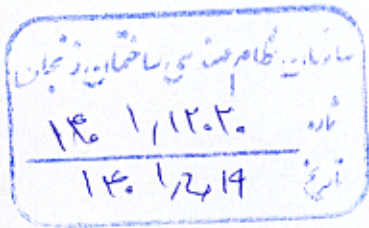 سازمان نظام مهندسی ساختمان زنجان
شماره ۱۴۰۱/۱۲۰۲۰
تاریخ